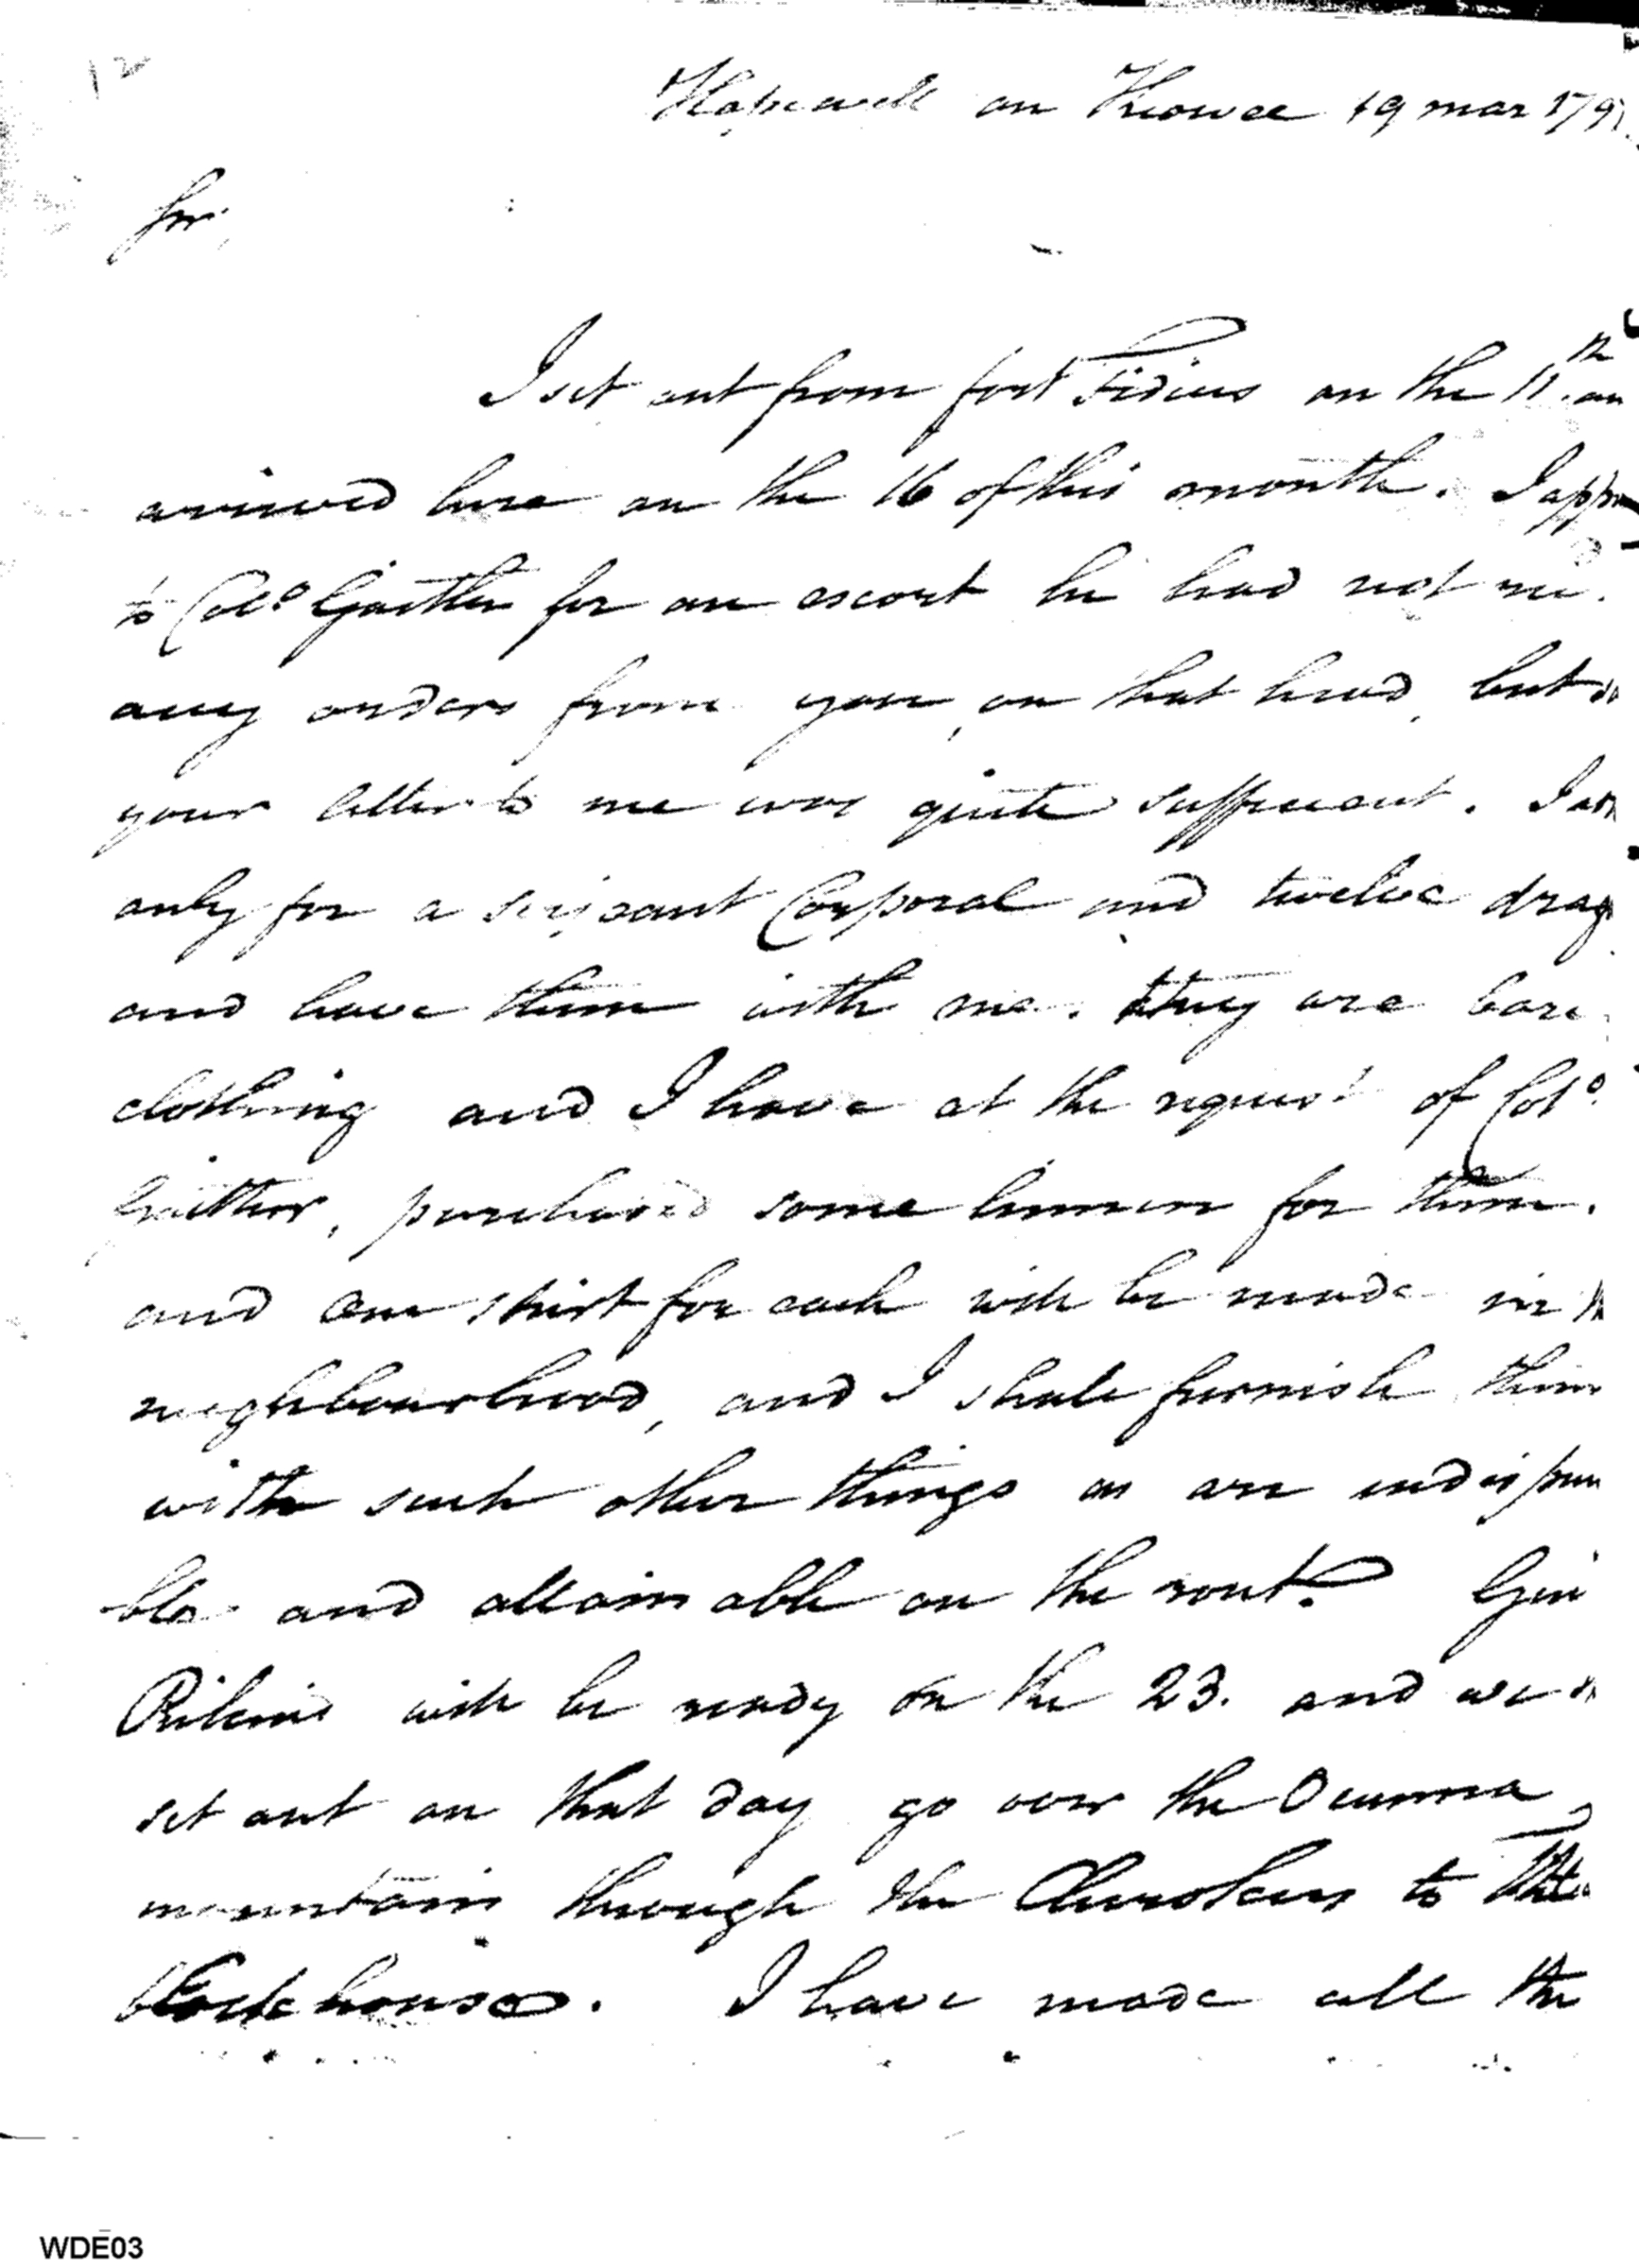 12
Hopewell on Keowee 19 mar 179
Sir,
I set out from fort Fidius on the 11th. an
arrived here on the 16 of this month. I app
to Colo. Gaither for an escort he had not
any orders from you, on that head, but
your letter to me was quite sufficient. I
only for a serjeant Corporal and twelve drag
and have them with me. they are bare
clothing and I have at the request of Colo.
Gaither, purchased some linnen for them.
and one shirt for each will be made in
neighbourhood, and I shall furnish them
with such other things as are indispen
ble and attainable on the rout. Gen
Pickens will be ready on the 23. and we
set out on that day go over the Ocunna
mountain through the Cherokees to
blockhouse. I have made all the
WDE03